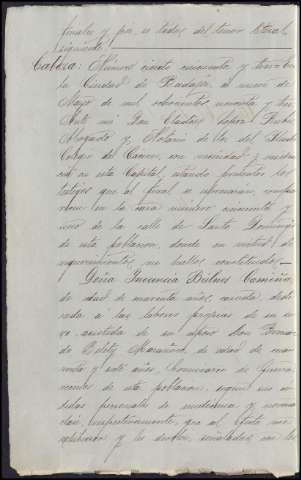 finales y pie, es todas del tenor literal
siguiente
Cabeza: Número ciento cincuenta y tres. En
la Ciudad de Badajoz, a nueve de
Mayo de mil ochocientos noventa y tres
Ante mi Don Claudio López Rubio
Abogado y Notario de los del Ilustre
Colegio de Cáceres, con vecindad y residen
cia en esta Capital, estando presentes los
testigos que al final se expresarán, compa
recen en la casa número cincuenta y
uno de la calle de Santo Domingo
de esta poblacion, donde en virtud de
requerimiento me hallo constituido.
Doña Inocencia Bulnes Camiño,
de edad de cuarenta años, casada, dedi
cada a las labores propias de su se
xo, asistida de su esposo Don
de Marañon, de edad de cua
renta y seis años, Comisario de Guerra,
vecinos de esta poblacion, segun sus cé
dulas personales de
clase, respectivamente, que al efecto me
exhibieron y les devolví, señaladas con los